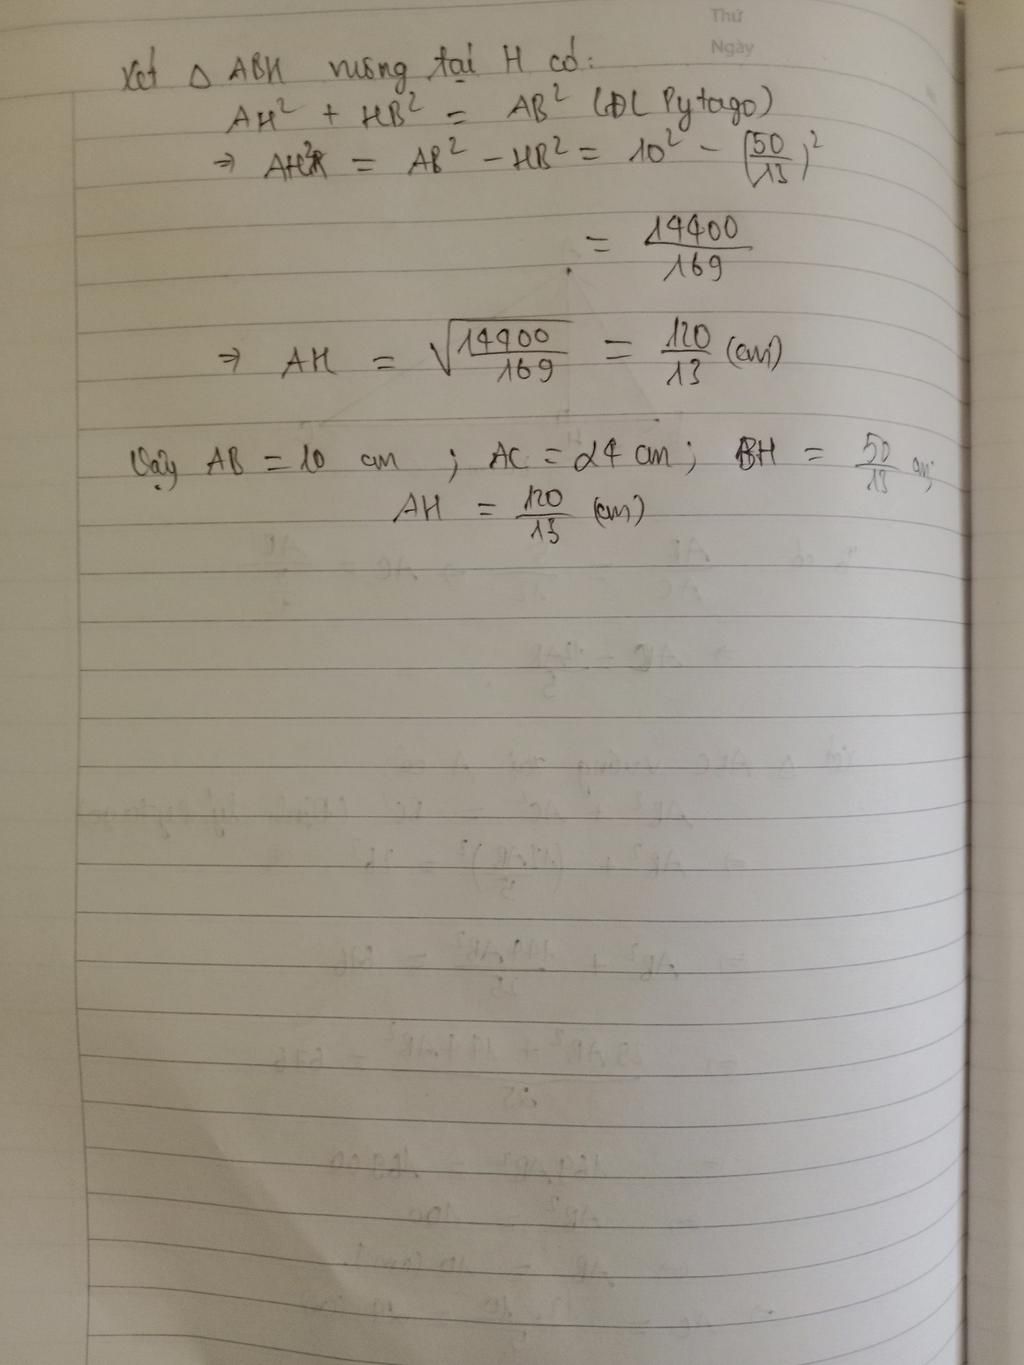 Thứ
Ngày
Xét △ ABH vuông tại H có:
AH² + HB² = AB² (ĐL Pytago)
⇒ AH² = AB² - HB² = 10² - (50/13)²
= 14400/169
⇒ AH = √(14400/169) = 120/13 (cm)
Vậy AB = 10 cm ; AC = 24 cm ; BH = 50/13 cm;
AH = 120/13 (cm)